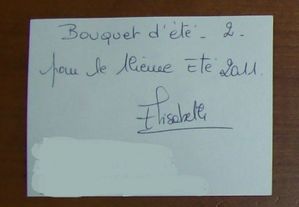 Bouquet d'été - 2 -
pour le 11ème Eté 2011.
Elisabeth